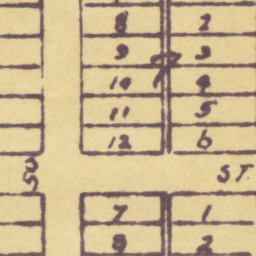 8 2
9 3
10 4
11 5
12 6
ST.
7 1
8 2